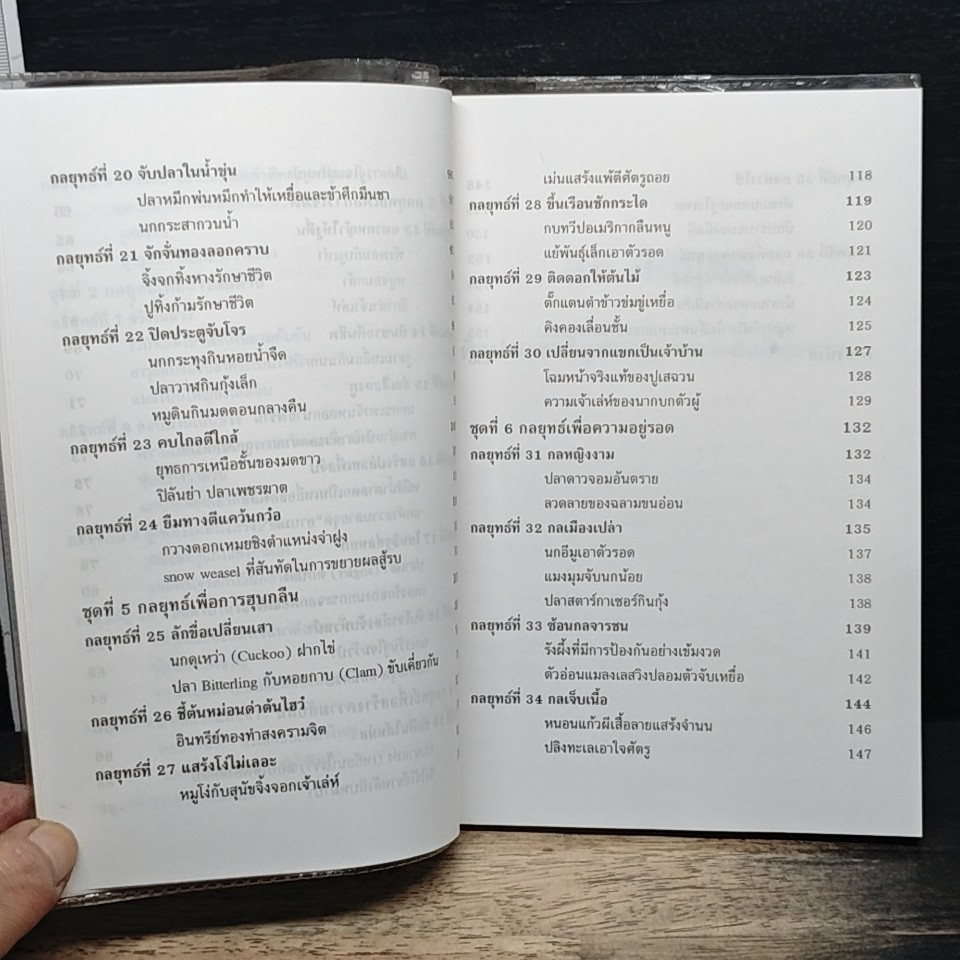 กลยุทธ์ที่ 20 จับปลาในน้ำขุ่น
ปลาหมึกพ่นหมึกทำให้เหยื่อและข้าศึกมึนชา
นกกระสากวนน้ำ
กลยุทธ์ที่ 21 จักจั่นทองลอกคราบ
จิ้งจกทิ้งหางรักษาชีวิต
ปูทิ้งก้ามรักษาชีวิต
กลยุทธ์ที่ 22 ปิดประตูจับโจร
นกกระทุงกินหอยน้ำจืด
ปลาวาฬกินกุ้งเล็ก
หมูดินกินมดตอนกลางคืน
กลยุทธ์ที่ 23 คบไกลตีใกล้
ยุทธการเหนือชั้นของมดขาว
ปิลันย่า ปลาเพชรฆาต
กลยุทธ์ที่ 24 ยืมทางตีแคว้นกว๋อ
กวางดอกเหมยชิงตำแหน่งจ่าฝูง
snow weasel ที่สันทัดในการขยายผลสู้รบ
ชุดที่ 5 กลยุทธ์เพื่อการฮุบกลืน
กลยุทธ์ที่ 25 ลักขื่อเปลี่ยนเสา
นกดุเหว่า (Cuckoo) ฝากไข่
ปลา Bitterling กับหอยกาบ (Clam) ขับเคี่ยวกัน
กลยุทธ์ที่ 26 ชี้ต้นหม่อนด่าต้นไฮว๋
อินทรีย์ทองทำสงครามจิต
กลยุทธ์ที่ 27 แสร้งโง่ไม่เลอะ
หมูโง่กับสุนัขจิ้งจอกเจ้าเล่ห์
เม่นแสร้งแพ้ตีศัตรูถอย 118
กลยุทธ์ที่ 28 ขึ้นเรือนชักกระได 119
กบทวีปอเมริกากลืนหนู 120
แย้พันธุ์เล็กเอาตัวรอด 121
กลยุทธ์ที่ 29 ติดดอกให้ต้นไม้ 123
ตั๊กแตนตำข้าวข่มขู่เหยื่อ 124
คิงคองเลื่อนชั้น 125
กลยุทธ์ที่ 30 เปลี่ยนจากแขกเป็นเจ้าบ้าน 127
โฉมหน้าจริงแท้ของปูเสฉวน 128
ความเจ้าเล่ห์ของนากบกตัวผู้ 129
ชุดที่ 6 กลยุทธ์เพื่อความอยู่รอด 132
กลยุทธ์ที่ 31 กลหญิงงาม 132
ปลาดาวจอมอันตราย 134
ลวดลายของฉลามขนอ่อน 134
กลยุทธ์ที่ 32 กลเมืองเปล่า 135
นกอีมูเอาตัวรอด 137
แมงมุมจับนกน้อย 138
ปลาสตาร์กาเซอร์กินกุ้ง 138
กลยุทธ์ที่ 33 ซ้อนกลจารชน 139
รังผึ้งที่มีการป้องกันอย่างเข้มงวด 141
ตัวอ่อนแมลงเลสวิงปลอมตัวจับเหยื่อ 142
กลยุทธ์ที่ 34 กลเจ็บเนื้อ 144
หนอนแก้วผีเสื้อลายแสร้งจำนน 146
ปลิงทะเลเอาใจศัตรู 147